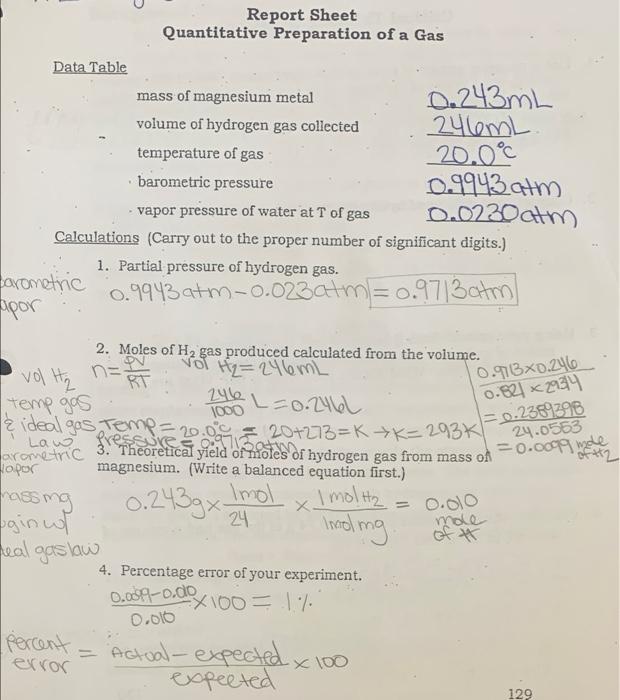 Report Sheet
Quantitative Preparation of a Gas
Data Table
mass of magnesium metal 0.243mL
volume of hydrogen gas collected 246mL
temperature of gas 20.0°C
barometric pressure 0.9943 atm
vapor pressure of water at T of gas 0.0230atm
Calculations (Carry out to the proper number of significant digits.)
1. Partial pressure of hydrogen gas.
barometric
apor
0.9943atm-0.023atm = 0.9713atm
2. Moles of H₂ gas produced calculated from the volume.
vol H₂
temp gas
& ideal gas
Law
n= PV/RT
vol H₂ = 246mL
246/1000 L = 0.246L
Temp = 20.0°C = 20+273=K → K= 293K
Pressure = 0.9713atm
0.9713 × 0.246
0.821 × 293.4
= 0.2389398
24.0563
= 0.0099 mole of H2
3. Theoretical yield of moles of hydrogen gas from mass of
magnesium. (Write a balanced equation first.)
arometric
vapor
mass mg
gin w/
deal gas law
0.243g × 1mol/24 × 1 mol H2/1mol mg = 0.010 mole of H
4. Percentage error of your experiment.
0.0099-0.010/0.010 × 100 = 1%
Percent error = Actual - expected/expected × 100
129